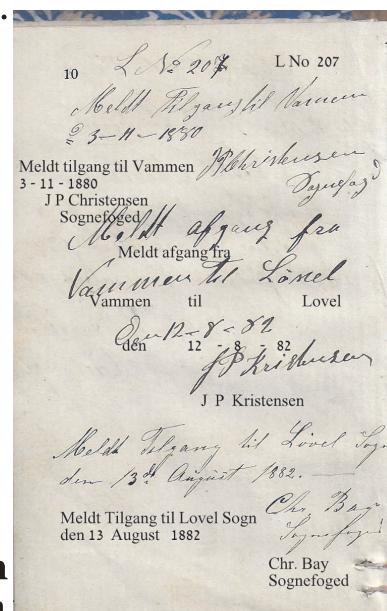 10 L No 207 L No 207
Meldt Tilgang til Vammen
d 3-11-1880
JPChristensen
Meldt tilgang til Vammen
3 - 11 - 1880
Sognefoged
J P Christensen
Sognefoged
Meldt afgang fra
Meldt afgang fra
Vammen til Lövel
Vammen til Lovel
Den 12-8-82
den 12 - 8 - 82
JP Kristensen
J P Kristensen
Meldt Tilgang til Lövel Sogn
den 13de August 1882.
Chr. Bay
Meldt Tilgang til Lovel Sogn
den 13 August 1882
Sognefoged
Chr. Bay
Sognefoged